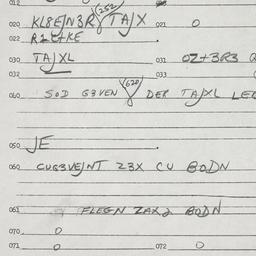 012
252
020 KL8EJN3R TAJX 021 0
022 R1E+KE
030 TAJXL 031 OZ+3R3
032 033
620
040 SOD G3VEN DER TAJXL LE
050 JE
060 CUG3VEJNT Z3X CU BODN
061 FLEGN ZAX2 BODN
070 0
071 0 072 0